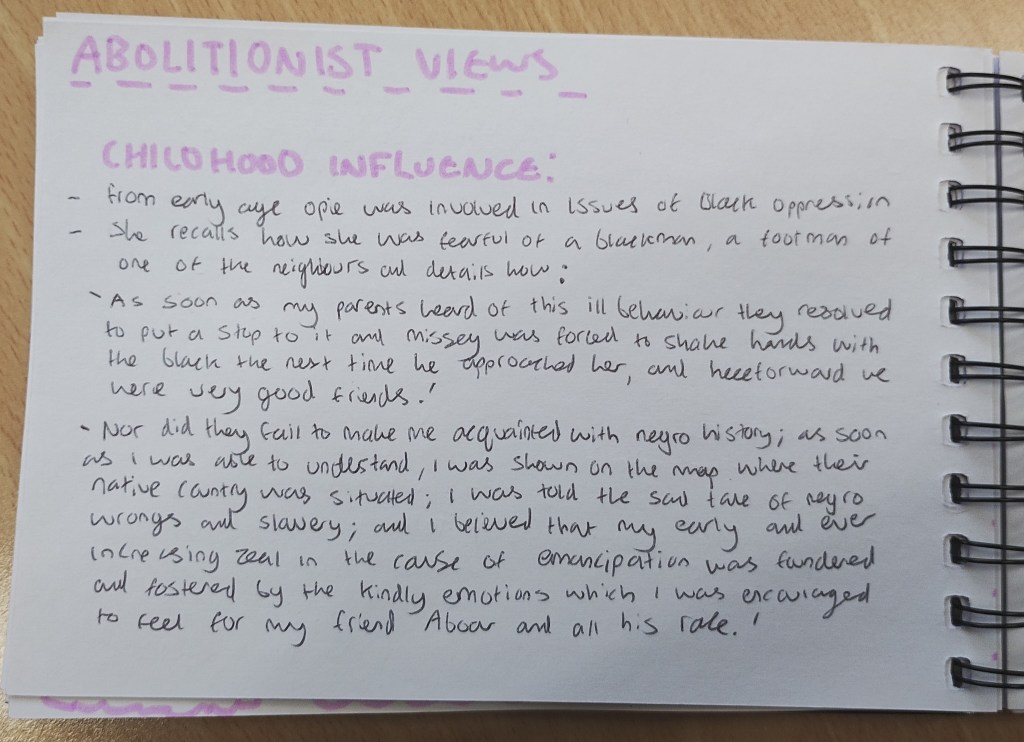 ABOLITIONIST VIEWS
CHILDHOOD INFLUENCE:
- from early age opie was involved in issues of black oppression
- She recalls how she was fearful of a blackman, a footman of
one of the neighbours and details how:
'As soon as my parents heard of this ill behaviour they resolved
to put a stop to it and missey was forced to shake hands with
the black the next time he approached her, and henceforward we
were very good friends.'
'Nor did they fail to make me acquainted with negro history; as soon
as i was able to understand, i was shown on the map where their
native country was situated; i was told the sad tale of negro
wrongs and slavery; and i believed that my early and ever
increasing zeal in the cause of emancipation was fundered
and fostered by the kindly emotions which i was encouraged
to feel for my friend Aboar and all his race.'